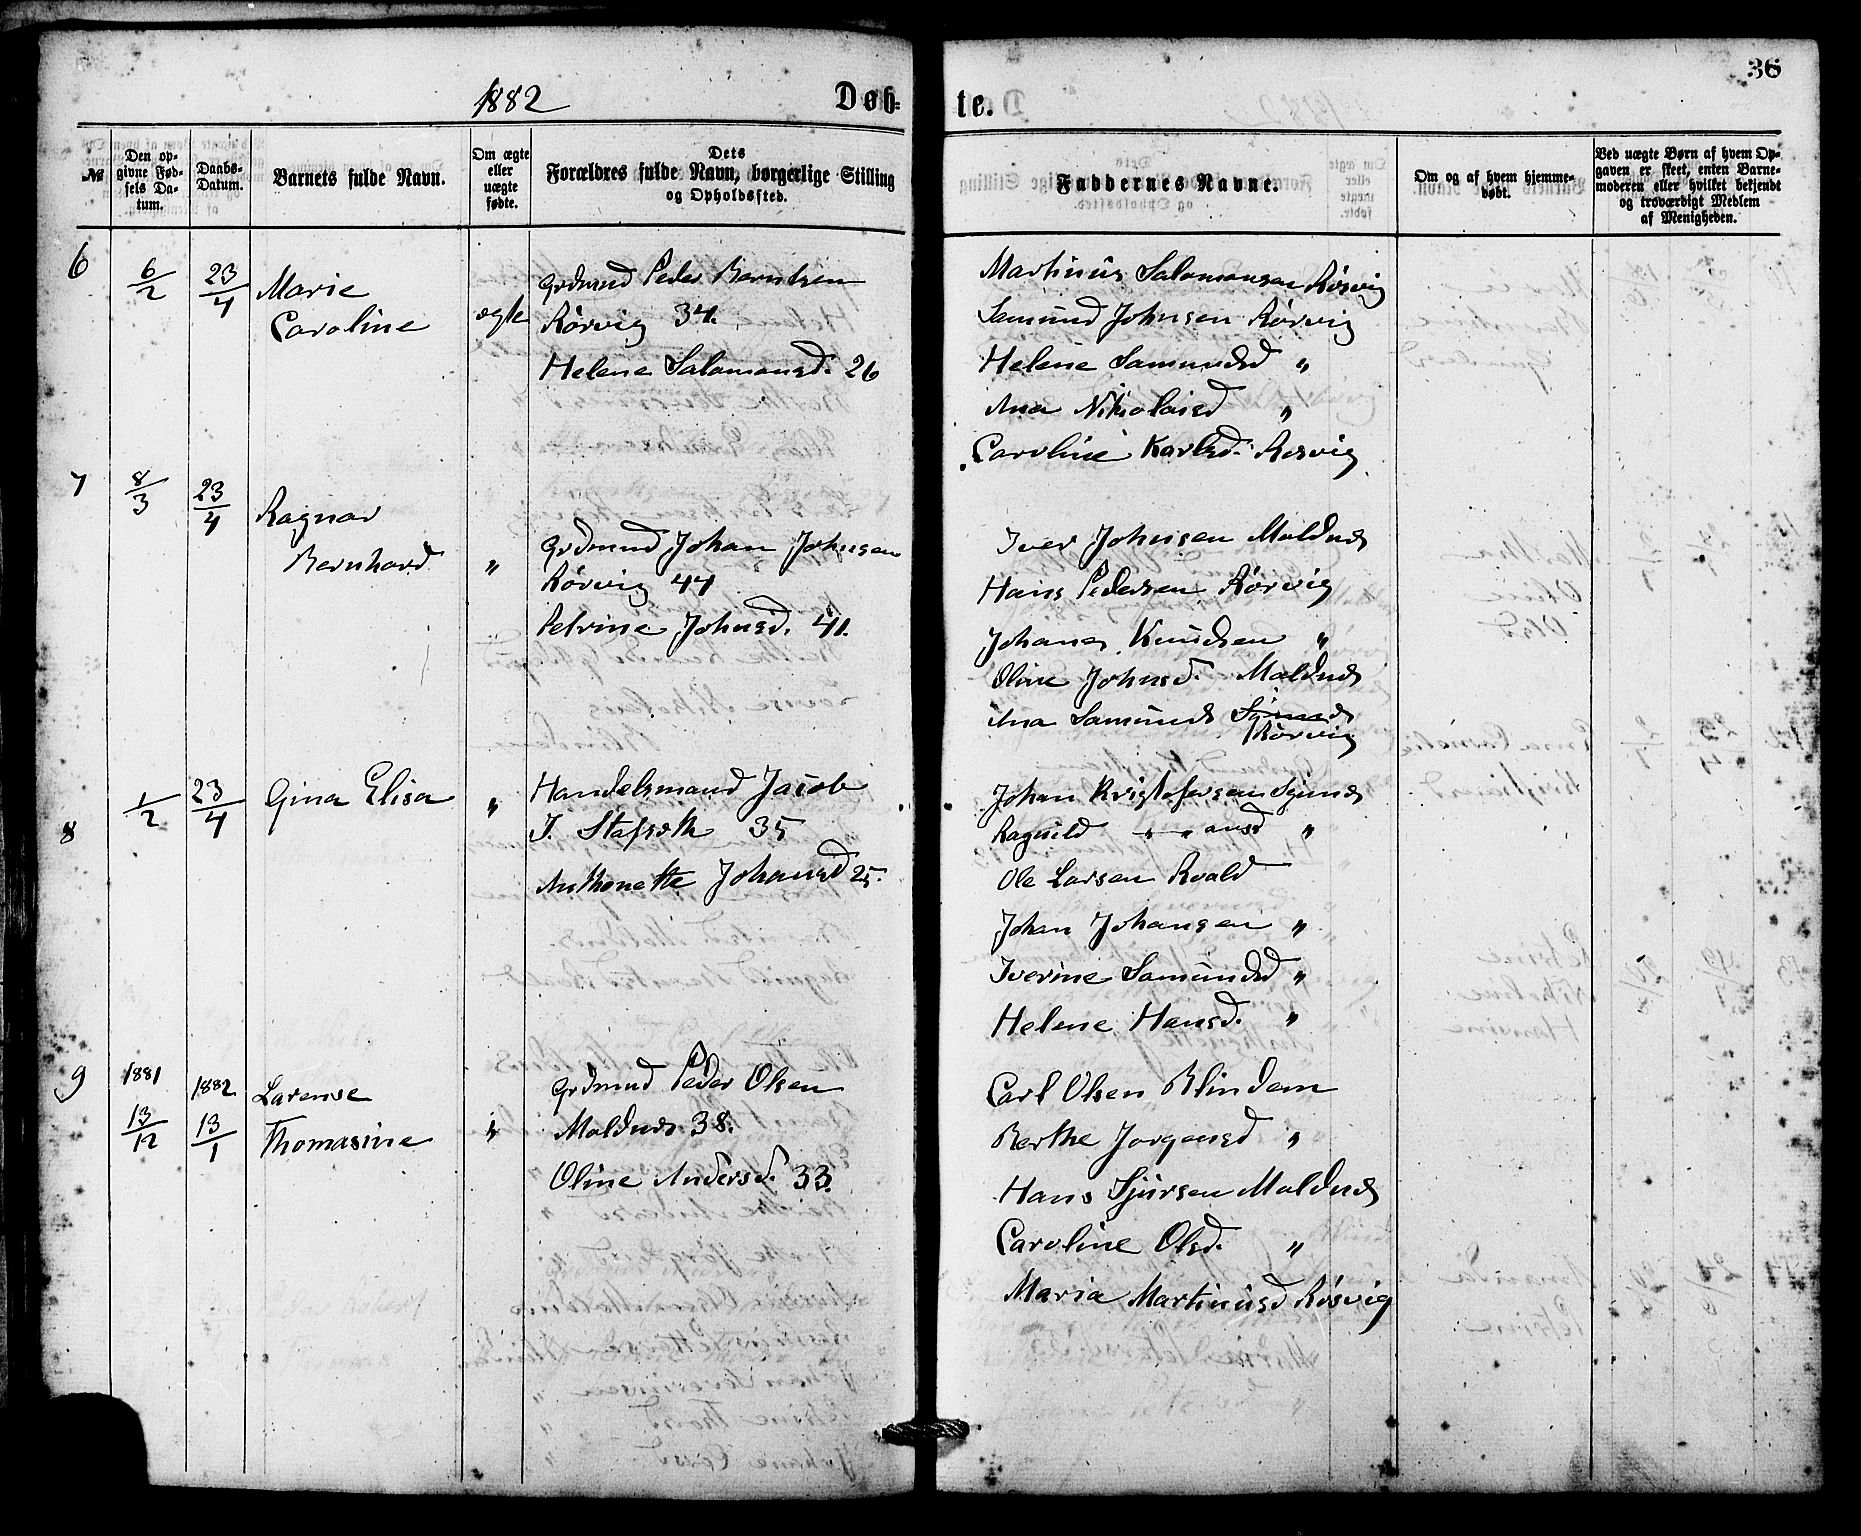 36
1882
Døb-
te.
№
Den opgivne Fødsels Datum.
Daabs-Datum.
Barnets fulde Navn.
Om ægte eller uægte fødte.
Dets Forældres fulde Navn, borgerlige Stilling og Opholdssted.
Faddernes Navne.
Om og af hvem hjemmedøbt.
Ved uægte Børn af hvem Opgaven er skeet, enten Barnemoderen eller hvilket bekjendt og troværdigt Medlem af Menigheden.
6
6/2
23/4
Marie
Caroline
ægte
Grdmnd Peder Berntsen
Rørvig 34.
Helene Salamonsd. 26
Martinus Salamonsen Røsvig
Samund Johnsen Rørvig
Helene Samundsd "
Ana Nikolaisd "
Caroline Karlsd. Rosvig
7
8/3
23/4
Ragnar
Bernhard
"
Grdmnd Johan Johnsen
Rørvig 44
Petrine Johnsd. 41.
Iver Johnsen Moldnes
Hans Pedersen Rørvig
Johanes Knudsen "
Oline Johnsd. Moldnes
Ana Samunds
Rørvig
8
1/2
23/4
Gina Elisa
"
Handelsmand Jacob
J. Stafseth 35
Anthonette Johansd 25.
Johan Kristofersen Sgjnnes
Ragnild " " ansd "
Ole Larsen Roald
Johan Johansen "
Iverine Samundsd "
Helene Hansd. "
9
1881
13/12
1882
13/1
Larense
Thomasine
"
Grdmnd Peder Olsen
Moldnes 38.
Oline Andersd. 33.
Carl Olsen Blindem
Berthe Jorgensd "
Hans Sjursen Moldnes
Caroline Olsd. "
Maria Martinusd Røsvig